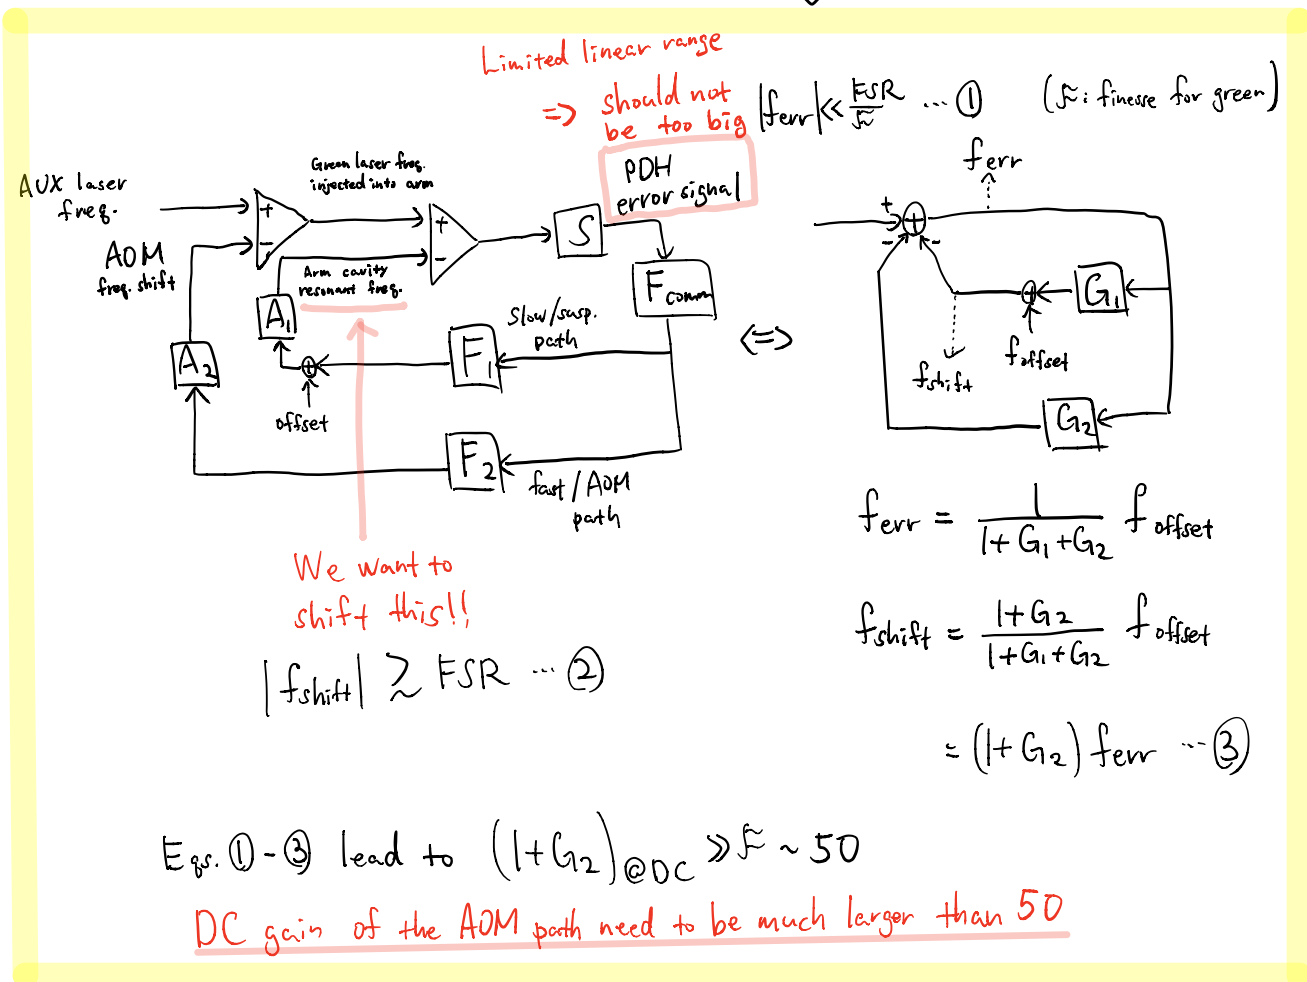 Limited linear range
⇒ should not
be too big
|ferr| ≪ FSR/𝓕 … ①
(𝓕: finesse for green)
AUX laser
freq.
AOM
freq. shift
Green laser freq.
injected into arm
+
-
+
-
Arm cavity
resonant freq.
S
PDH
error signal
Fcomm
A1
A2
Slow/susp.
path
F1
offset
F2
fast/AOM
path
⇔
ferr
+
-
-
G1
foffset
fshift
G2
We want to
shift this!!
|fshift| ≳ FSR … ②
ferr = 1/(1+G1+G2) foffset
fshift = (1+G2)/(1+G1+G2) foffset
= (1+G2) ferr … ③
Eqs. ①-③ lead to (1+G2)@DC ≫ 𝓕 ~ 50
DC gain of the AOM path need to be much larger than 50